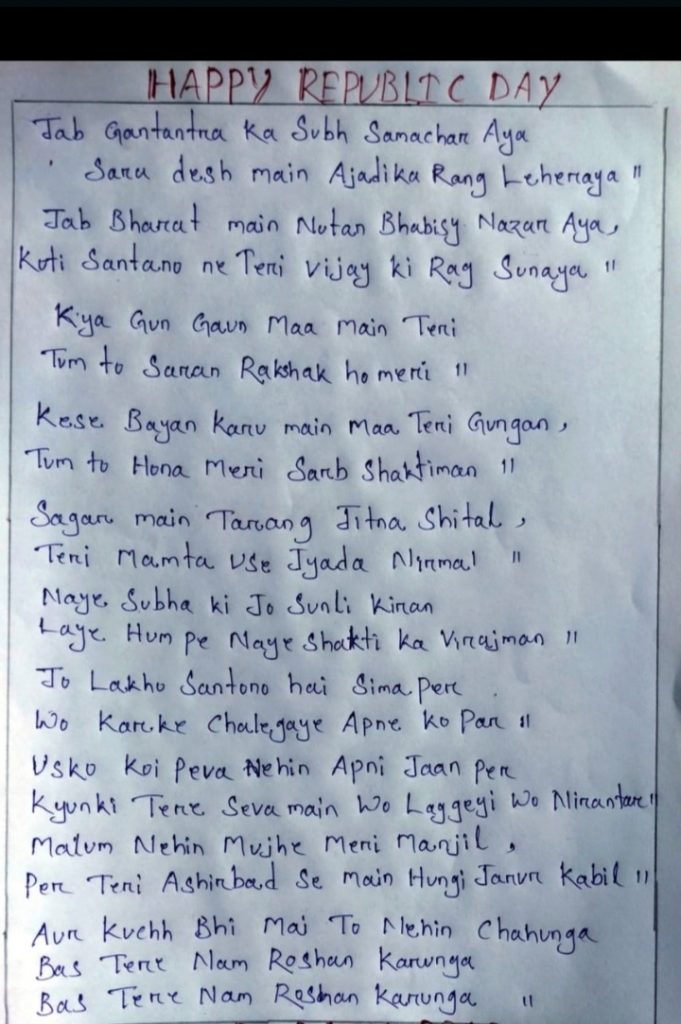 HAPPY REPUBLIC DAY
Jab Gantantra Ka Subh Samachar Aya
Saru desh main Ajadika Rang Leheraya "
Jab Bharat main Notan Bhabisy Nazar Aya,
Koti Santano ne Teri Vijay ki Rag Sunaya "
Kya Gun Gaun Maa main Teri
Tum to Saran Rakshak ho meri "
Kese Bayan Karu main Maa Teri Gungan,
Tum to Hona Meri Sarb Shaktiman "
Sagar main Tarang Jitna Shital,
Teri Mamta Use Jyada Nirmal "
Naye Subha ki Jo Sunli Kiran
Laye Hum pe Naye Shakti ka Virajman "
Jo Lakho Santono hai Sima per
Wo Karke Chalegaye Apne ko Par "
Usko Koi Peva Nehin Apni Jaan per
Kyunki Tere Seva main Wo Laggeyi Wo Nirantar "
Malum Nehin Mujhe Meri Manjil,
Per Teri Ashirbad Se main Hungi Jarur Kabil "
Aur Kuchh Bhi Mai To Nehin Chahunga
Bas Tere Nam Roshan Karunga
Bas Tere Nam Roshan Karunga "